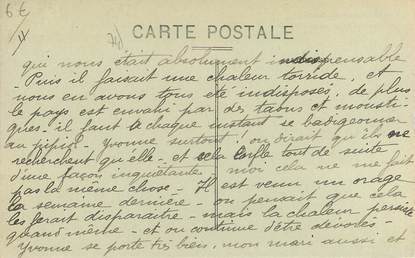 6 €
CARTE POSTALE
qui nous était absolument indispensable
- Puis il faisait une chaleur torride, et
nous en avons tous été indisposés, de plus
le pays est envahi par des taons et mousti-
ques - il faut à chaque instant se badigeonner
au pipiol - Yvonne surtout, on dirait qu'ils ne
recherchent qu'elle - et cela enfle tout de suite
d'une façon inquiétante - moi cela ne me fait
pas la même chose - Il est venu un orage
la semaine dernière - on pensait que cela
les ferait disparaitre - mais la chaleur persiste
quand même - et on continue d'être dévorés -
Yvonne se porte très bien, mon mari aussi et